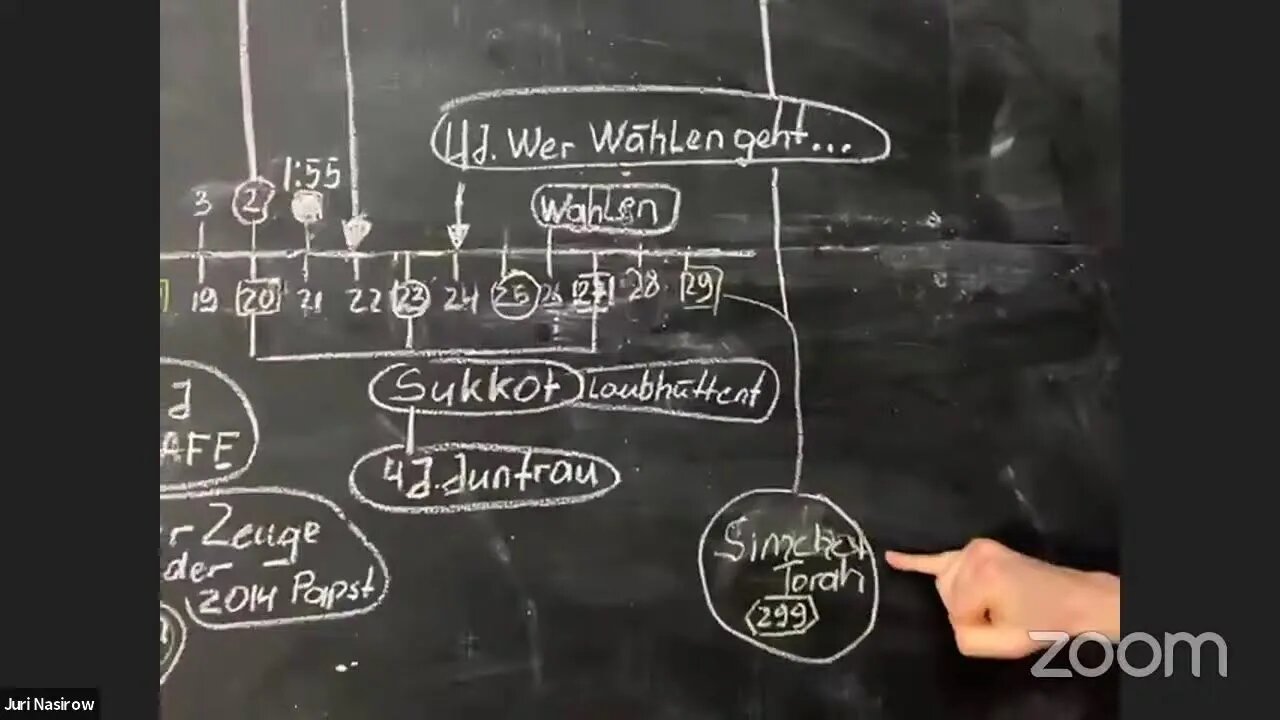 4J. Wer Wählen geht...
1:55
3 2
Wahlen
19 20 21 22 23 24 25 26 27 28 29
Sukkot Laubhüttent
4J. Junfrau
J
AFE
r Zeuge
der
2014 Papst
Simchat
Torah
299
zoom
Juri Nasirow